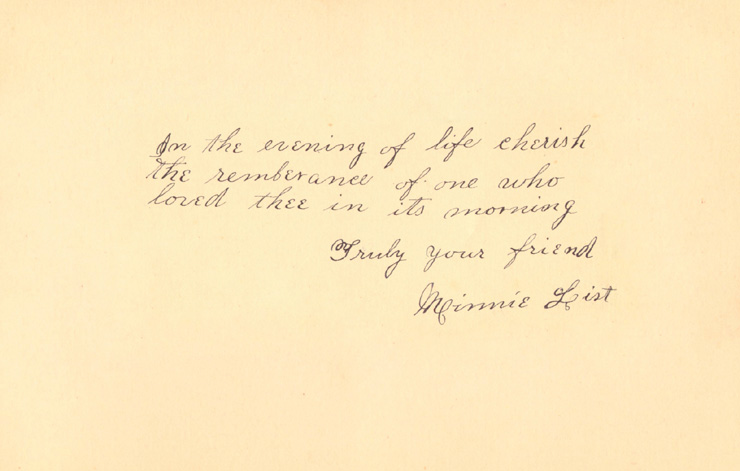 In the evening of life cherish
the remberance of one who
loved thee in its morning
Truly your friend
Minnie List